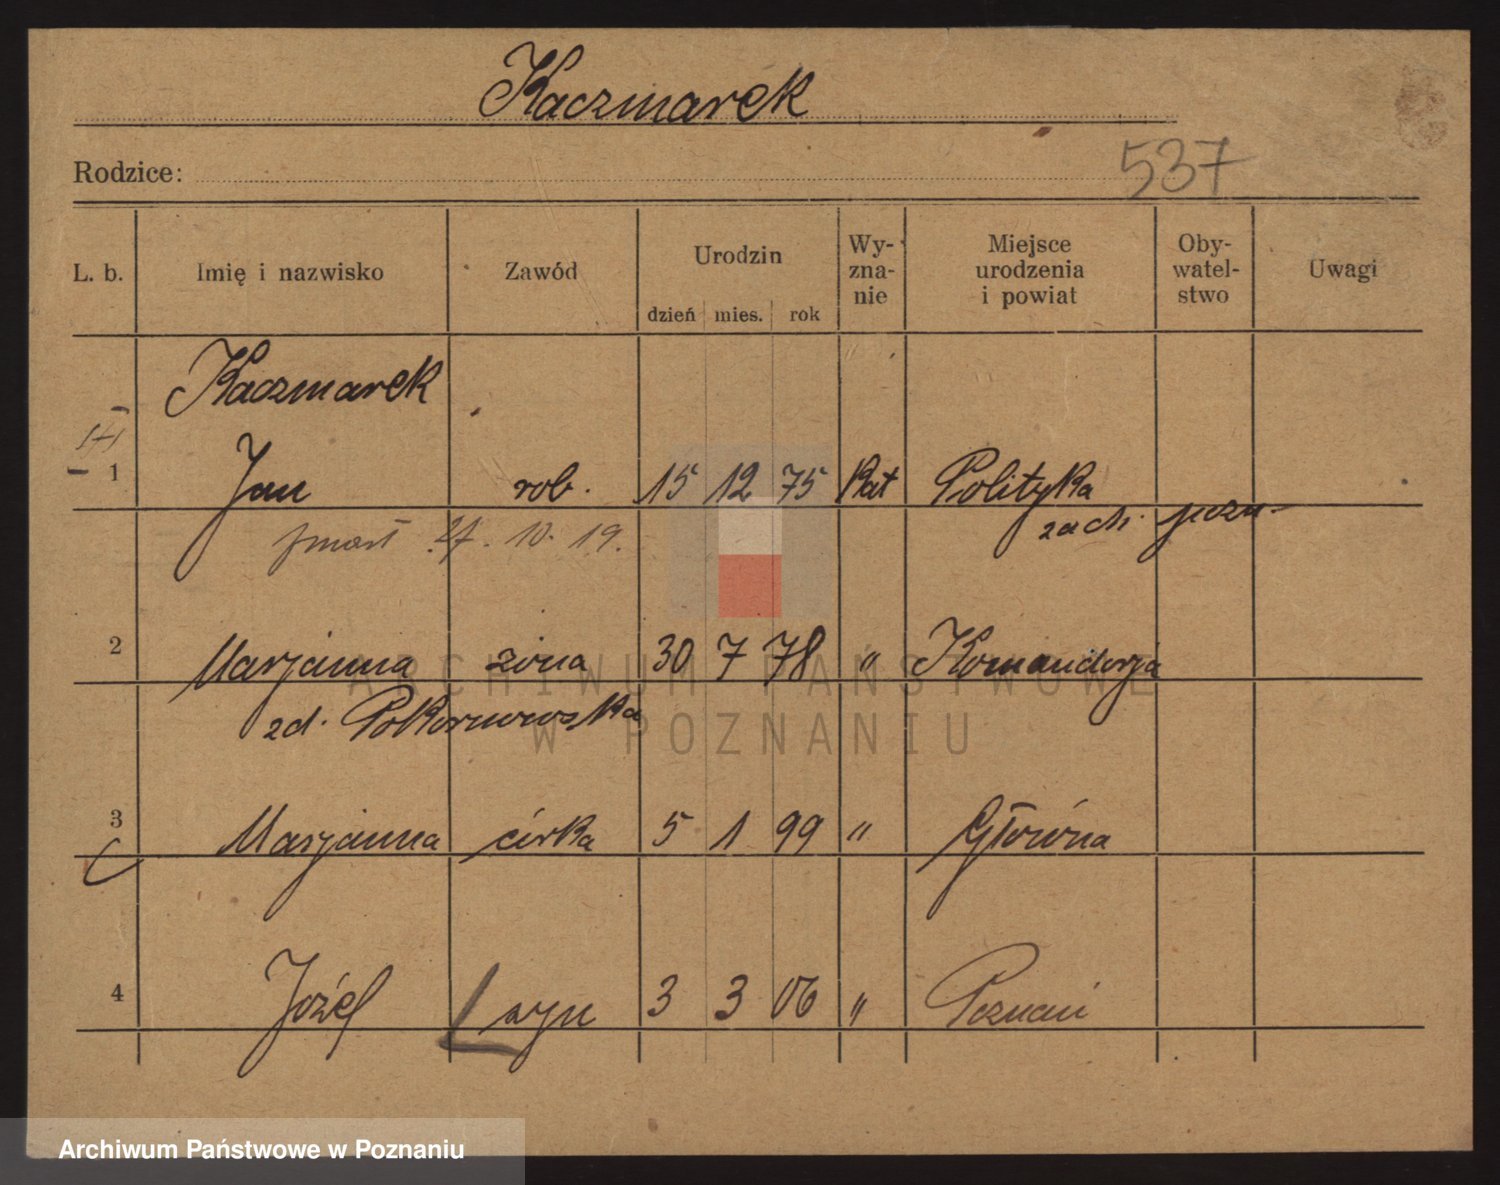 Kaczmarek
Rodzice:
537
L. b. Imię i nazwisko Zawód Urodzin dzień mies. rok Wy-zna-nie Miejsce urodzenia i powiat Oby-watel-stwo Uwagi
Kaczmarek
1 Jan rob. 15 12 75 Kat Polityka
zach. pozn.
zmarł 27. 10. 19.
2 Marjanna żona 30 7 78 " Komandorja
zd. Pokornowska
3 Marjanna córka 5 1 99 " Główna
4 Józef syn 3 3 06 " Poznań
ARCHIWUM PAŃSTWOWE
W POZNANIU
Archiwum Państwowe w Poznaniu